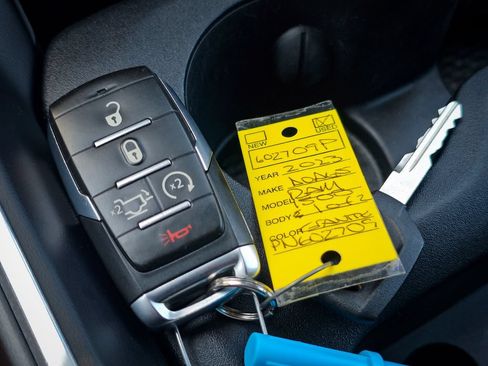 NEW USED
602709P
YEAR 2023
MAKE DODGE
MODEL RAM
BODY 1500
COLOR
PN602709
x2
x2